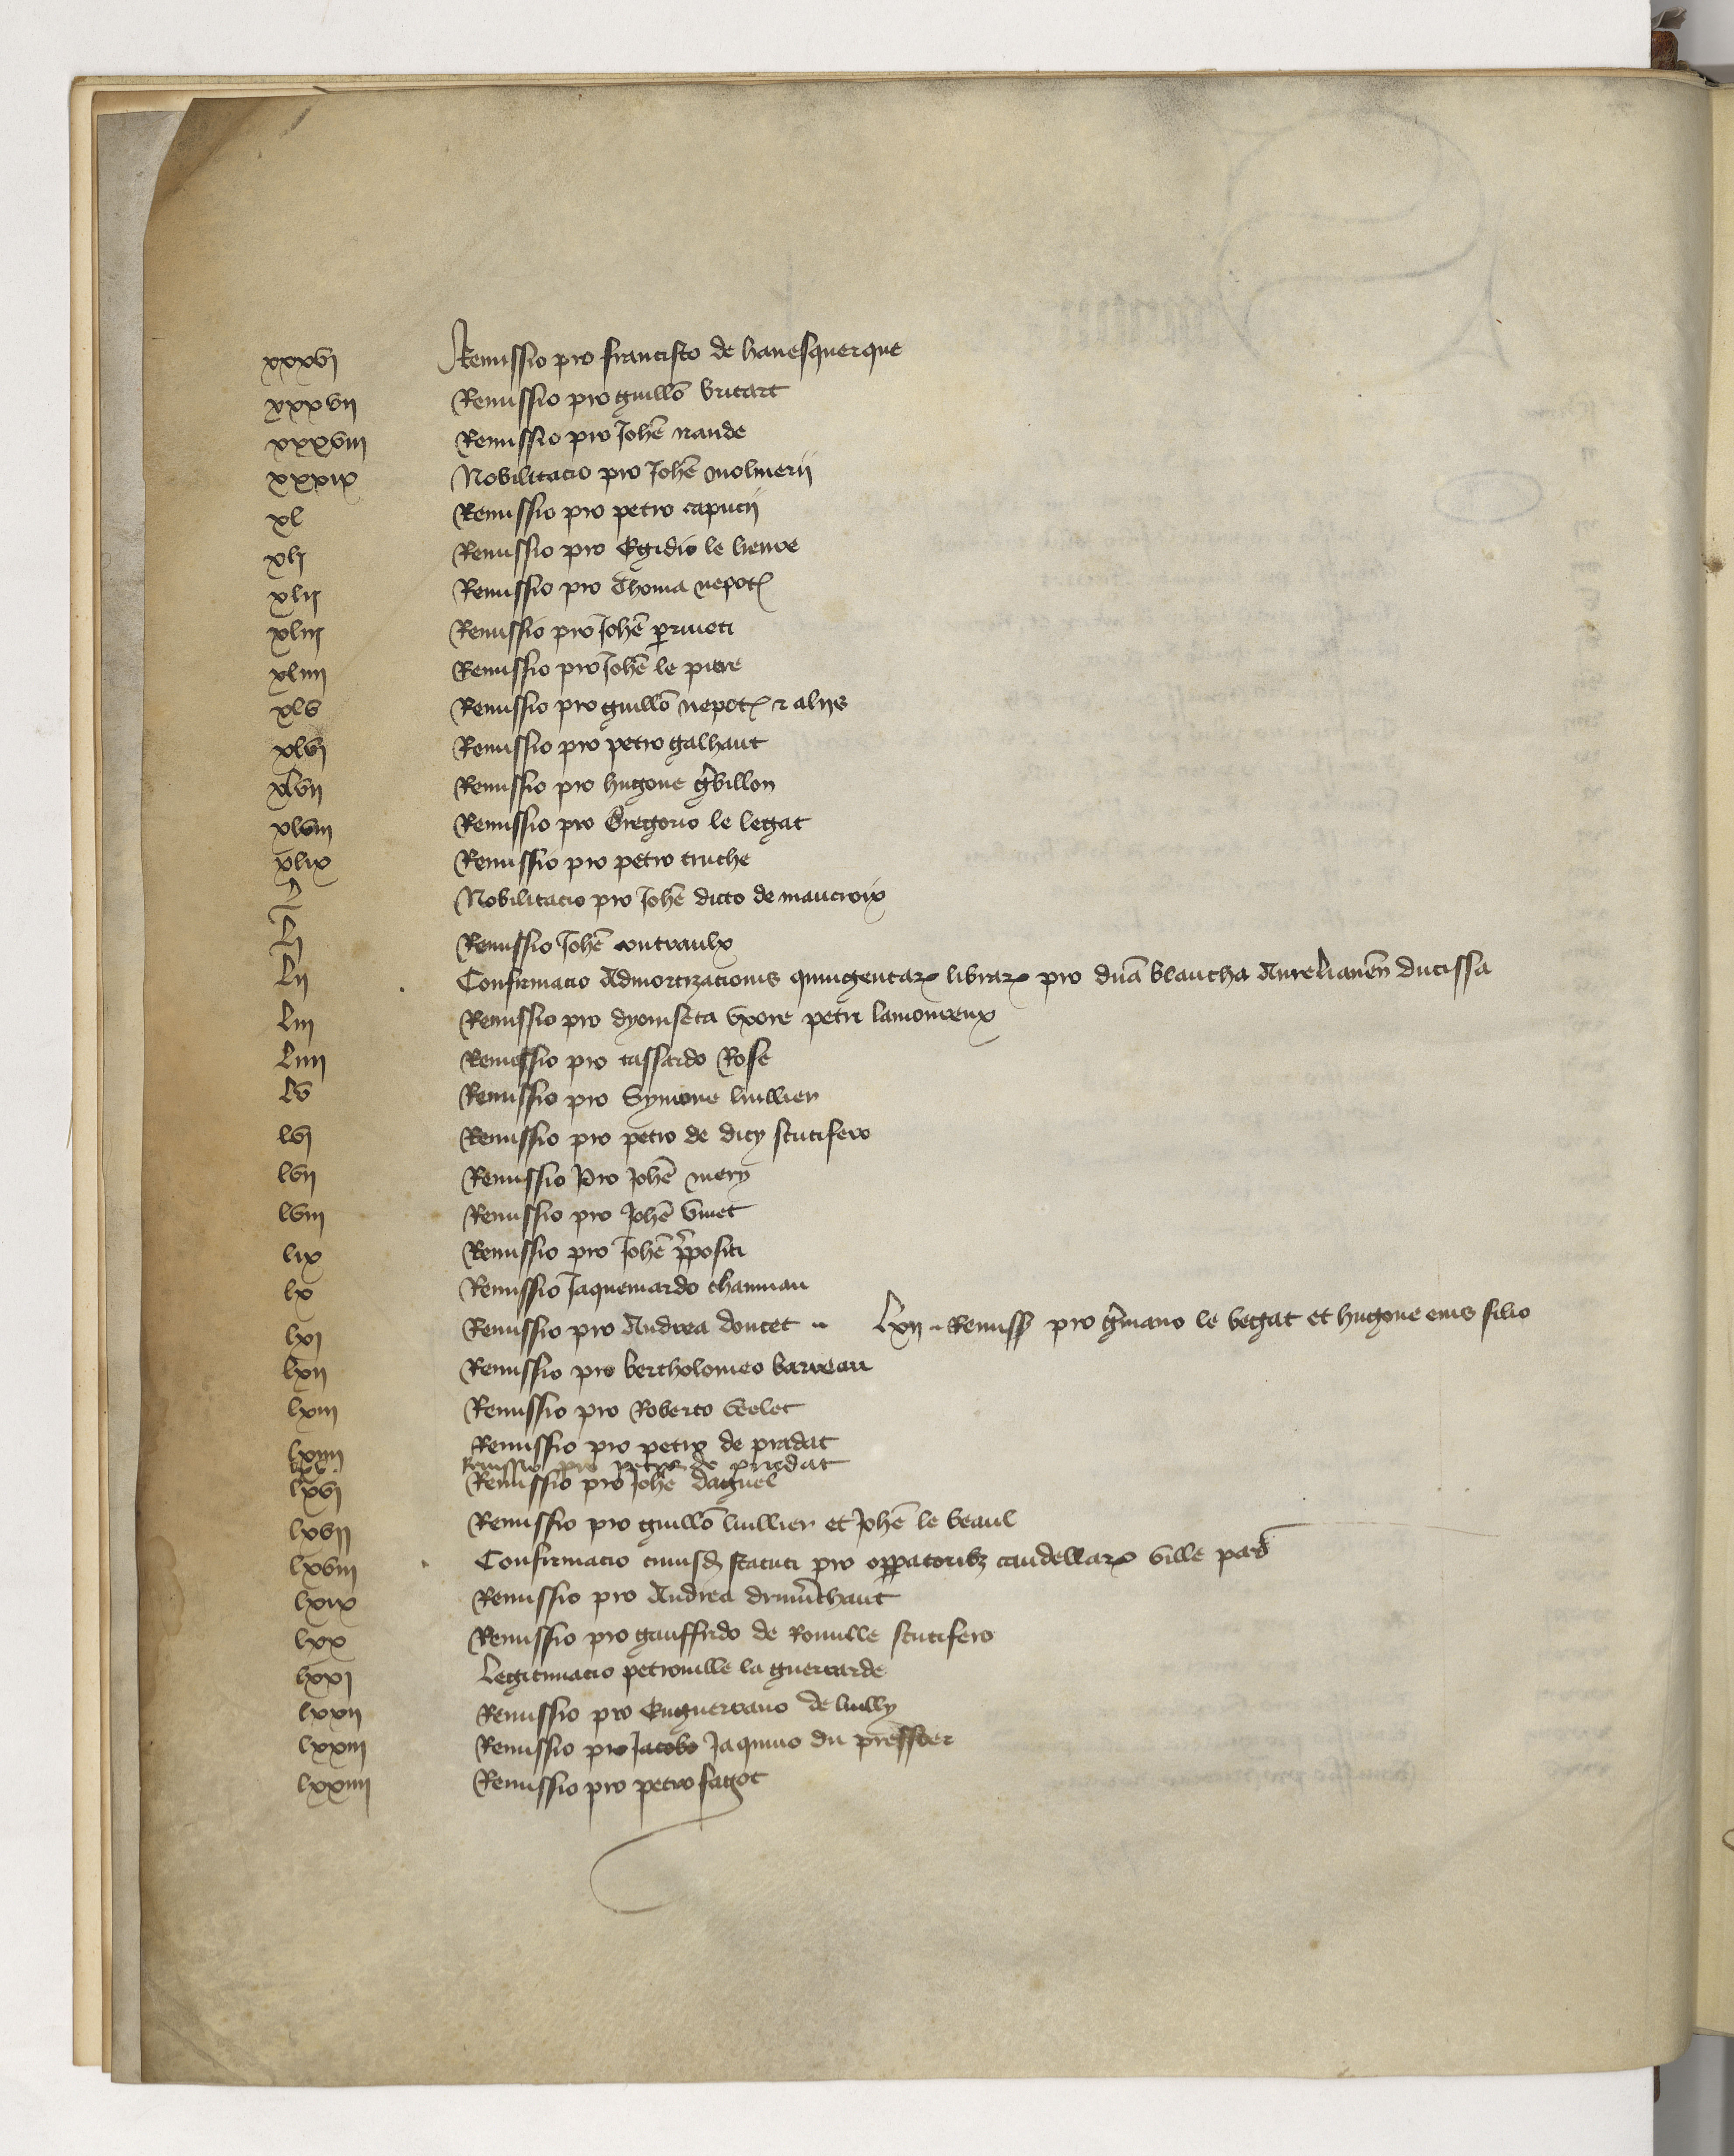 xxxvj Remissio pro francisco de hanesquerque
xxxvij Remissio pro guillo͞ britart
xxxviij Remissio pro Johe͞ naude
xxxix Nobilitacio pro Johe͞ molinerij
xl Remissio pro petro capucij
xlj Remissio pro Egidio le lieure
xlij Remissio pro Thoma nepot
xliij Remissio pro Johe͞ priueti
xliiij Remissio pro Johe͞ le piere
xlv Remissio pro guillo͞ nepot ⁊ alijs
xlvj Remissio pro petro galhaut
xlvij Remissio pro hugone g͛billon
xlviij Remissio pro Gregorio le legat
xlix Remissio pro petro truche
L Nobilitacio pro Johe͞ dicto de maucroix
Lj Remissio Johe͞ contraulx
Lij Confirmacio Admortizacionis quingentaꝝ libraꝝ pro dn͞a blancha Aurelianen͞ ducissa
Liij Remissio pro dyoniseta vxore petri lamoureux
Liiij Remissio pro tassardo Rose
Lv Remissio pro Symone luillier
lvj Remissio pro petro de dicy scutifero
lvij Remissio pro Johe͞ mery
lviij Remissio pro Johe͞ vinet
lix Remissio pro Johe͞ p͞positi
lx Remissio Jaquemardo chanman
lxj Remissio pro Andrea doucet .. Lxij .. Remiss pro g͛mano le vegat et hugone eius filio
lxij Remissio pro bertholomeo barreau
lxiij Remissio pro Roberto veelet
lxiiij Remissio pro petro de pradat
lxv Remissio pro petro de pradat
lxvj Remissio pro Johe͞ daguel
lxvij Remissio pro guillo͞ luillier et Johe͞ le veaul
lxviij Confirmacio cuiusd͛ statuti pro op͞patoribꝫ candellaꝝ ville par͛
lxix Remissio pro Andrea
lxx Remissio pro gauffrido de Rouille scutifero
lxxj Legitimacio petronille la guerarde
lxxij Remissio pro Enguerrano de luilly
lxxiij Remissio pro Jacobo Jaquino du pressoer
lxxiiij Remissio pro petro fagot